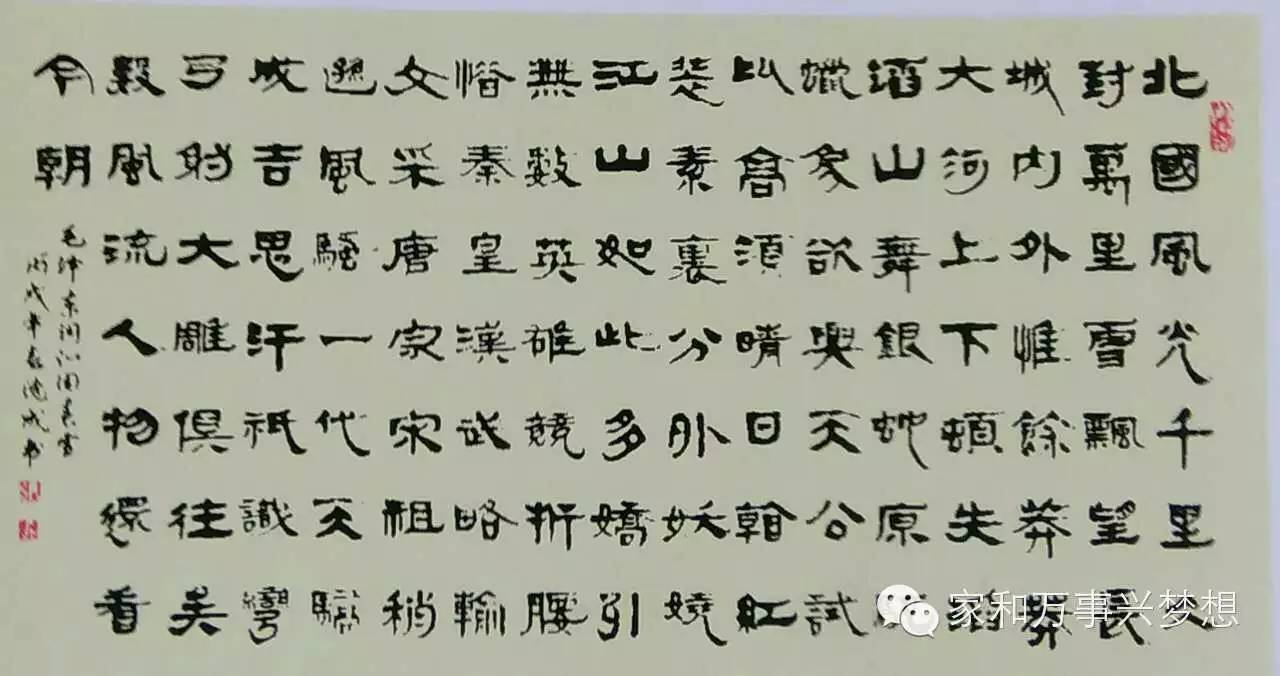 北國風光千里冰
封萬里雪飄望長
城內外惟餘莽莽
大河上下頓失滔
滔山舞銀蛇原馳
蠟象欲與天公試
比高須晴日看紅
裝素裹分外妖嬈
江山如此多嬌引
無數英雄競折腰
惜秦皇漢武略輸
文采唐宗宋祖稍
遜風騷一代天驕
成吉思汗祇識彎
弓射大雕俱往矣
數風流人物還看
今朝
毛泽东词沁園春雪
丙戌年春德成书
家和万事兴梦想